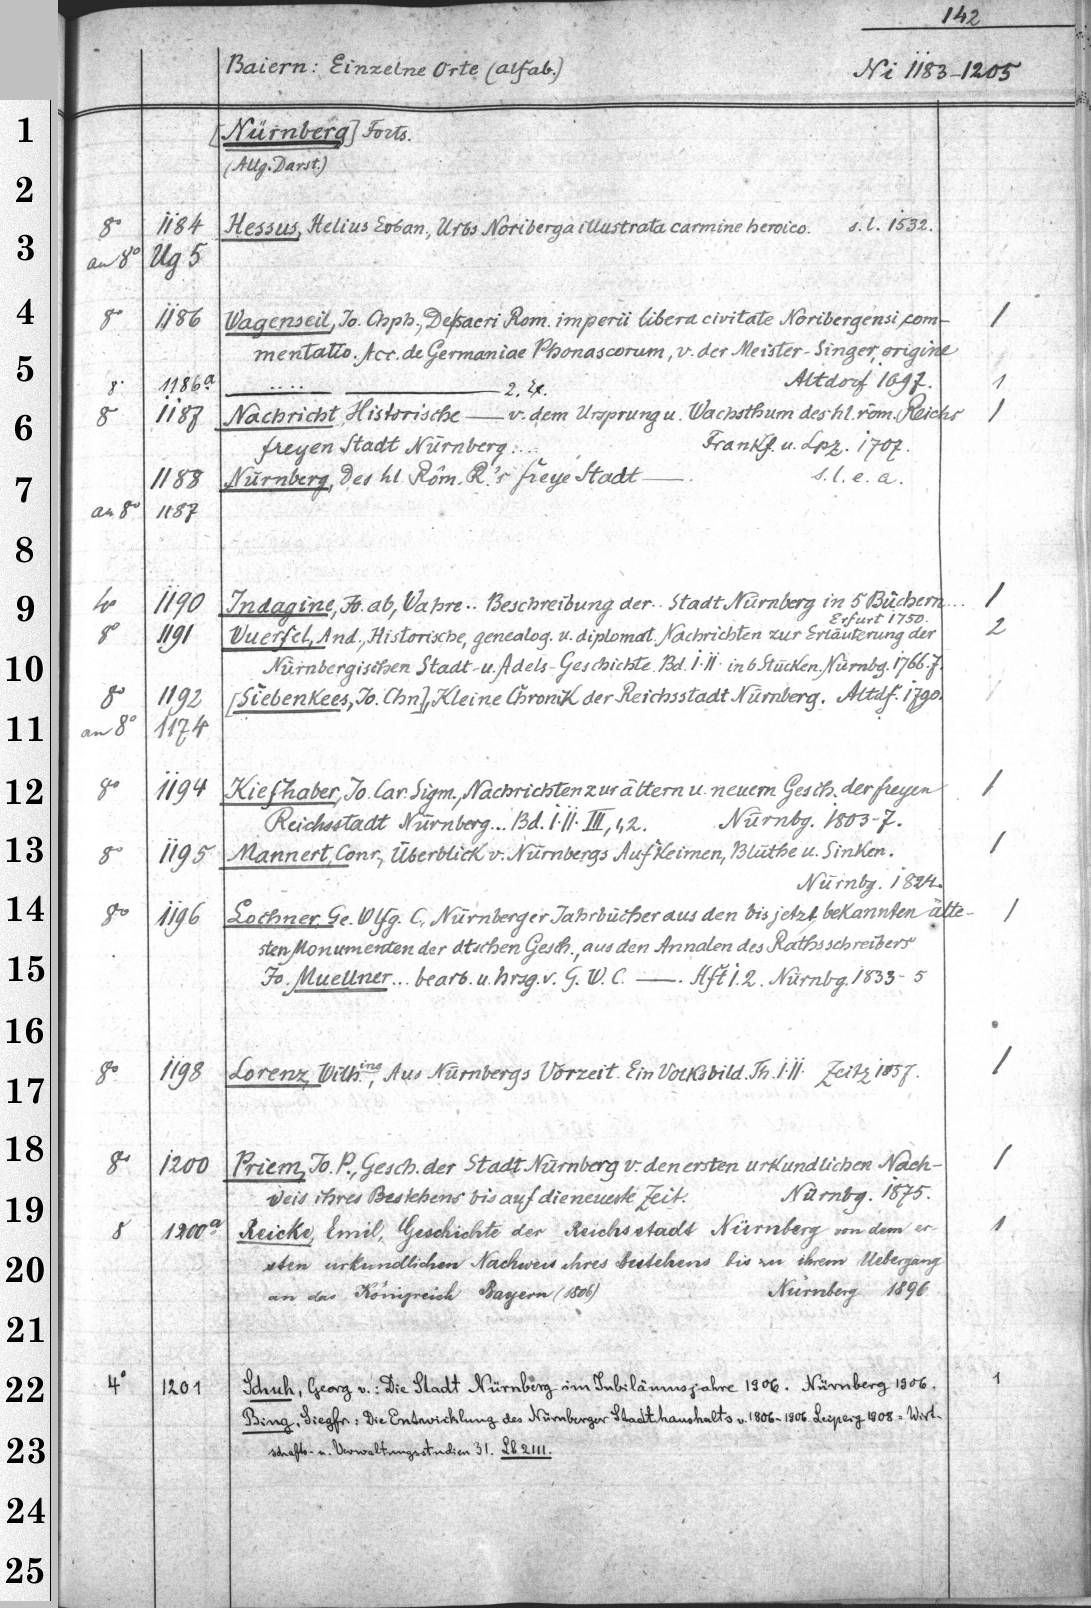 142
Baiern: Einzelne Orte (alfab.) Ni 1183-1205
1 [Nürnberg] Forts.
(Allg. Darst.)
2
8° 1184 Hessus, Helius Eoban., Urbs Noriberga illustrata carmine heroico. s. l. 1532.
3 an 8° Ug 5
4 8° 1186 Wagenseil, Jo. Chph., De sacri Rom. imperii libera civitate Noribergensi com- 1
mentatio. Acc. de Germaniae Phonascorum, v. der Meister-Singer, origine
5 8° 1186a ——— 2. Ex. Altdorf 1697. 1
6 8° 1187 Nachricht, Historische — v. dem Ursprung u. Wachsthum des hl. röm. Reichs 1
freyen Stadt Nürnberg .... Frankf. u. Lpz. 1707.
7 1188 Nürnberg, Des hl. Röm. R.'s freye Stadt —. s. l. e. a.
an 8° 1187
8
9 4° 1190 Indagine, Jo. ab, Wahre .. Beschreibung der .. Stadt Nürnberg in 5 Büchern... 1
Erfurt 1750.
8° 1191 Wuerfel, And., Historische, genealog. u. diplomat. Nachrichten zur Erläuterung der 2
10 Nürnbergischen Stadt- u. Adels-Geschichte. Bd. I. II. in 6 Stücken. Nürnbg. 1766.7.
8° 1192 [Siebenkees, Jo. Chn], Kleine Chronik der Reichsstadt Nürnberg. Altdf. 1790. 1
11 an 8° 1174
12 8° 1194 Kiefhaber, Jo. Car. Sigm., Nachrichten zur ältern u. neuern Gesch. der freyen 1
Reichsstadt Nürnberg... Bd. I. II. III, 1, 2. Nürnbg. 1803-7.
13 8° 1195 Mannert, Conr., Überblick v. Nürnbergs Aufkeimen, Blüthe u. Sinken. 1
Nürnbg. 1824.
14 8° 1196 Lochner, Ge. Wfg. C., Nürnberger Jahrbücher aus den bis jetzt bekannten älte- 1
sten Monumenten der dtschen Gesch., aus den Annalen des Rathsschreibers
15 Jo. Muellner... bearb. u. hrsg. v. G. W. C. —. Hft 1. 2. Nürnbg. 1833-5
16
17 8° 1198 Lorenz, Wilhine, Aus Nürnbergs Vorzeit. Ein Volksbild. Th. I. II. Zeitz 1837. 1
18 8° 1200 Priem, Jo. P., Gesch. der Stadt Nürnberg v. den ersten urkundlichen Nach- 1
weis ihres Bestehens bis auf die neueste Zeit. Nürnbg. 1875.
19 8 1200a Reicke, Emil, Geschichte der Reichsstadt Nürnberg von dem er- 1
20 sten urkundlichen Nachweis ihres Bestehens bis zu ihrem Uebergang
an das Königreich Bayern (1806) Nürnberg 1896
21
22 4° 1201 Schuh, Georg v.: Die Stadt Nürnberg im Jubiläumsjahre 1906. Nürnberg 1906. 1
Bing, Siegfr.: Die Entwicklung des Nürnberger Stadthaushalts v. 1806-1906. Leipzig 1908 = Wirt-
23 schafts- u. Verwaltungsstudien 31. Lb 2111.
24
25